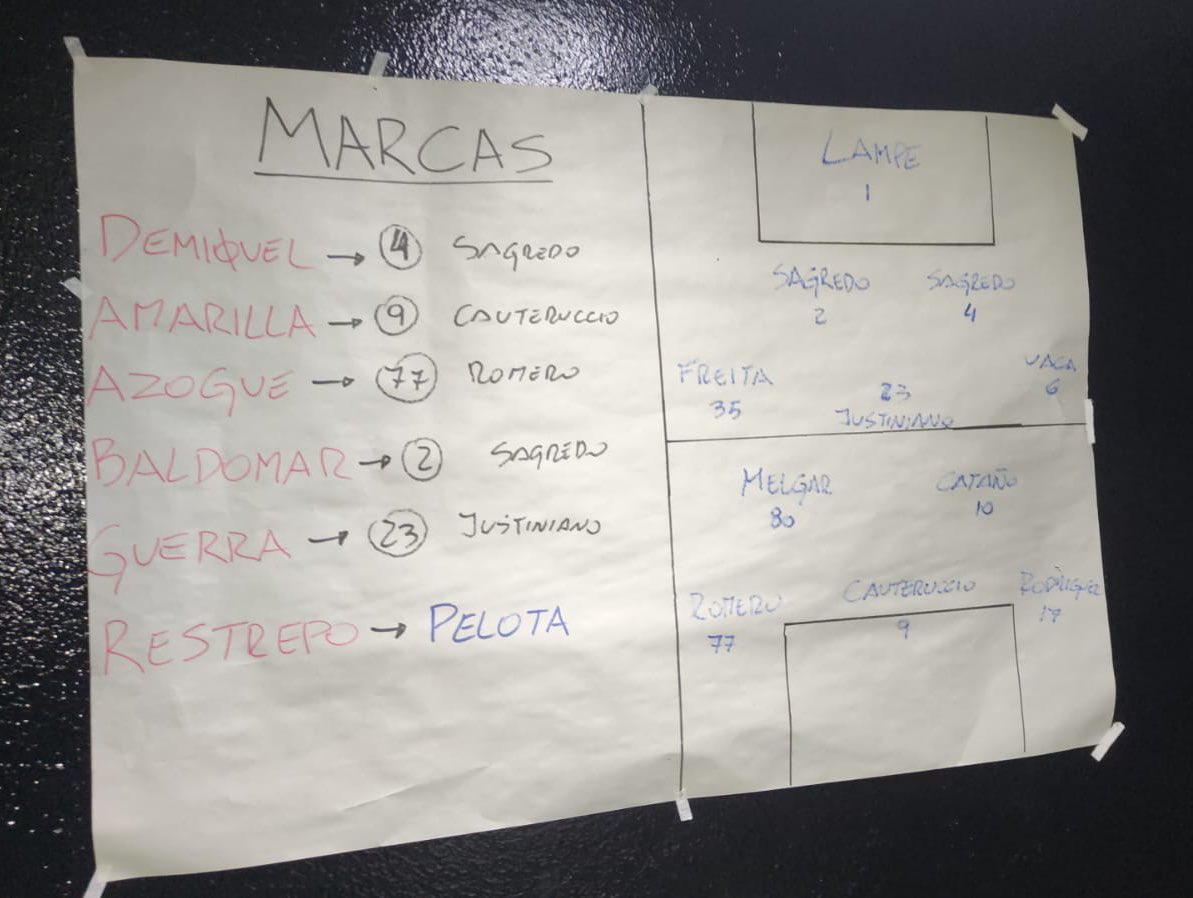 MARCAS
DEMIQUEL → 4 SAGREDO
AMARILLA → 9 CAUTERUCCIO
AZOGUE → 77 ROMERO
BALDOMAR → 2 SAGREDO
GUERRA → 23 JUSTINIANO
RESTREPO → PELOTA
LAMPE
1
SAGREDO SAGREDO
2 4
FREITA 23 VACA
35 JUSTINIANO 6
MELGAR CATAÑO
80 10
ROMERO CAUTERUCCIO RODRIGUEZ
77 9 19